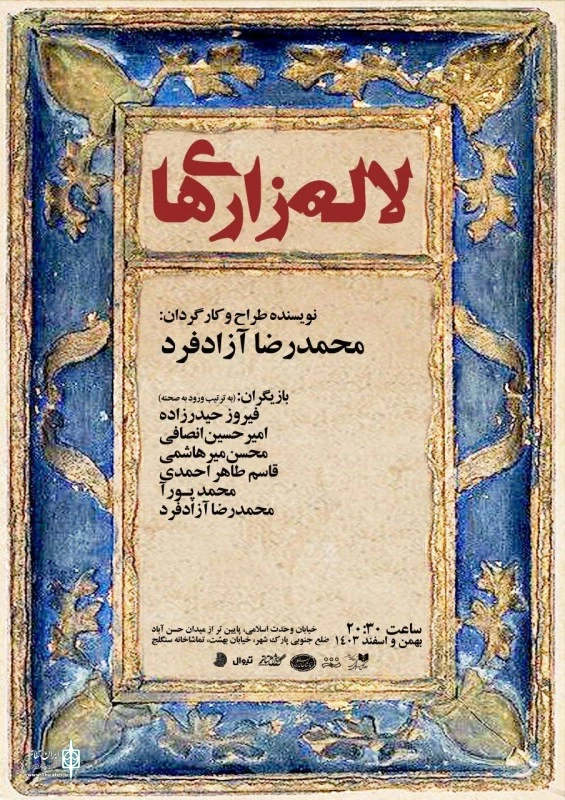 لاله‌زاری‌ها
نویسنده طراح و کارگردان:
محمدرضا آزادفرد
بازیگران: (به ترتیب ورود به صحنه)
فیروز حیدرزاده
امیرحسین انصافی
محسن میرهاشمی
قاسم طاهر احمدی
محمد پورآ
محمدرضا آزادفرد
ساعت ۲۰:۳۰
بهمن و اسفند ۱۴۰۳
خیابان وحدت اسلامی، پایین تر از میدان حسن آباد
ضلع جنوبی پارک شهر، خیابان بهشت، تماشاخانه سنگلج
تیوال